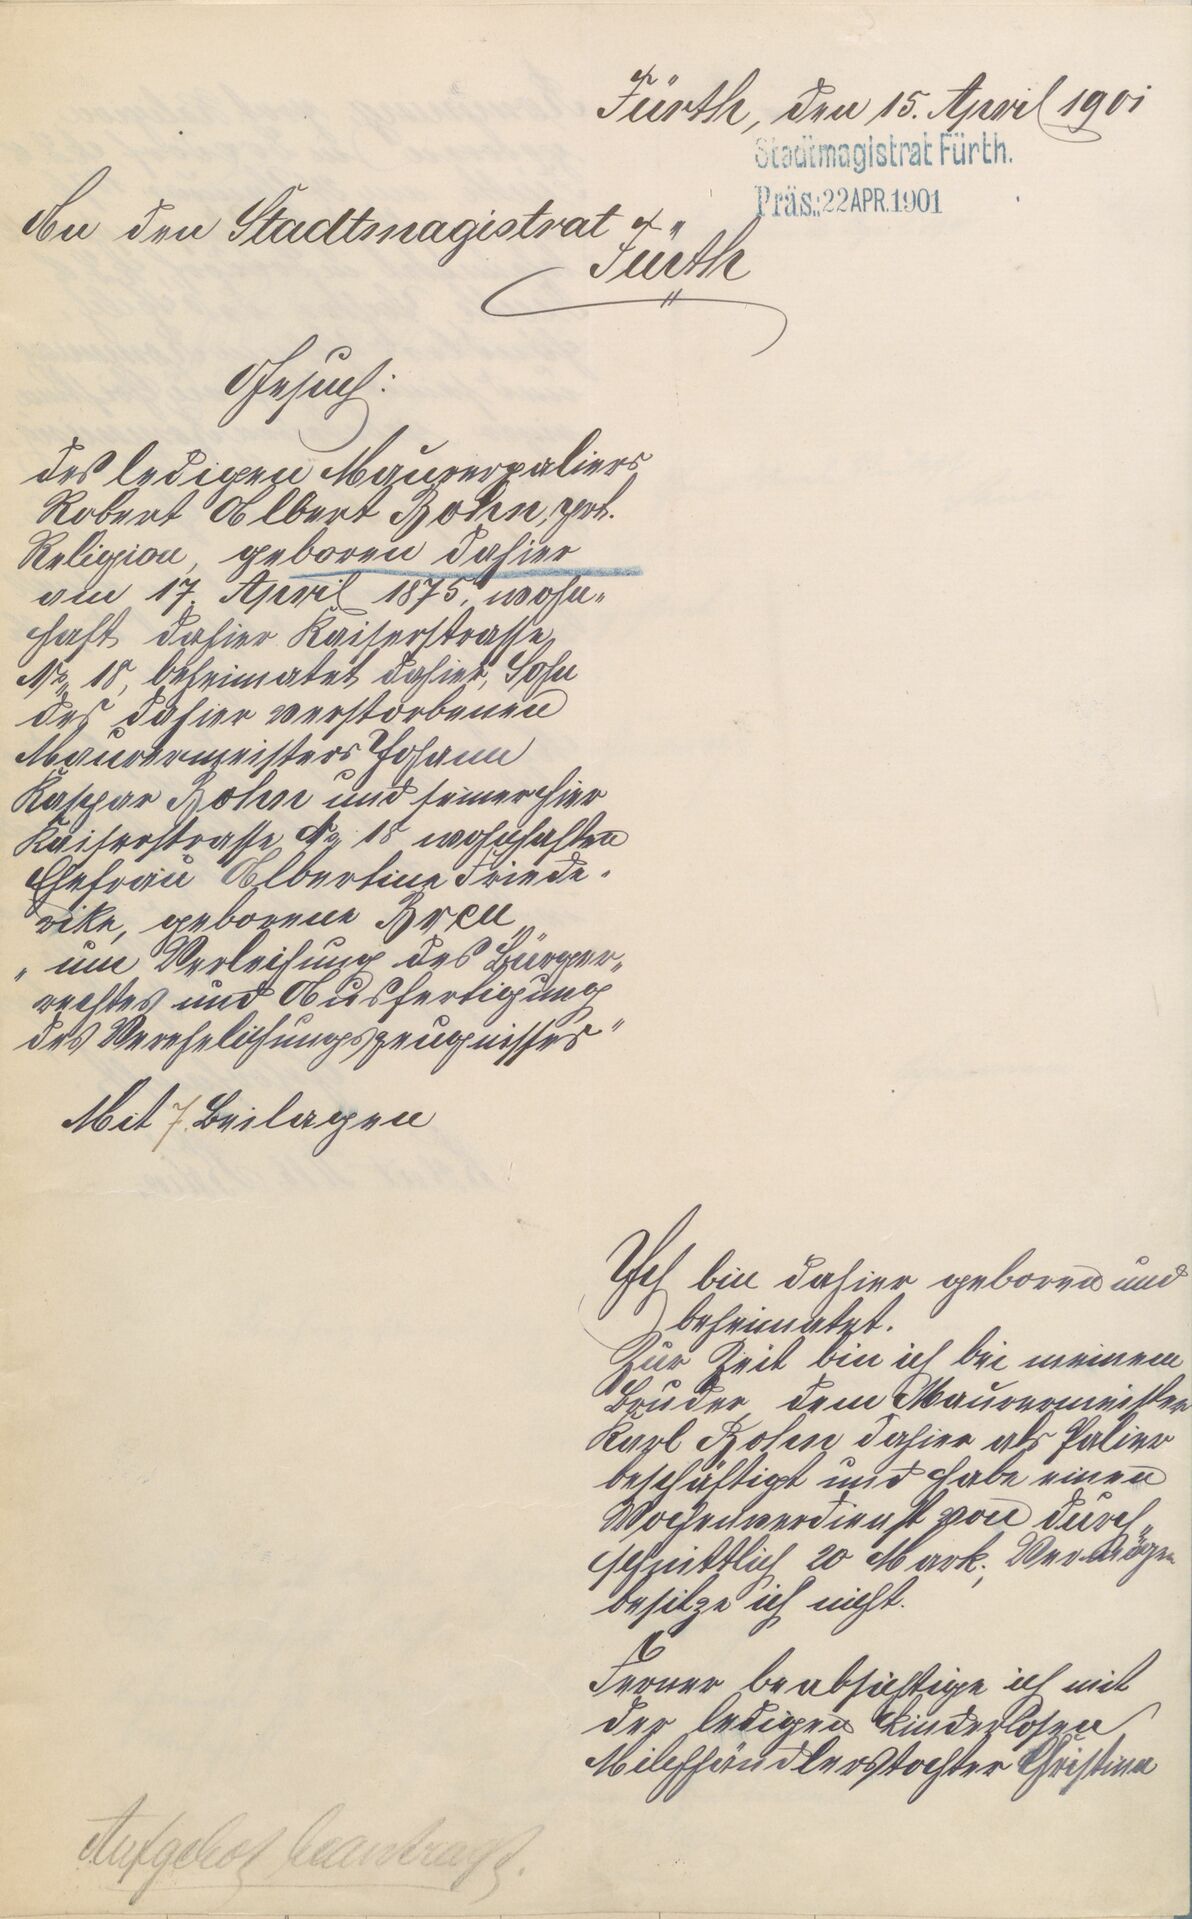 Fürth, den 15. April 1901
Stadtmagistrat Fürth.
Präs.: 22 APR. 1901
An den Stadtmagistrat
Fürth
Gesuch:
des ledigen Maurerpaliers
Robert Albert Bohn, prt.
Religion, geboren dahier
am 17. April 1875, wohn-
haft dahier Kaiserstrasse
No 18, beheimatet dahier, Sohn
des dahier verstorbenen
Maurermeisters Johann
Kaspar Bohn und seiner hier
Kaiserstrasse No 18 wohnhaften
Ehefrau Albertine Friede-
rike, geborene Breu
" um Verleihung des Bürger-
rechtes und Ausfertigung
des Verehelichungszeugnisses"
Mit 7. Beilagen
Ich bin dahier geboren und
beheimatet.
Zur Zeit bin ich bei meinem
Bruder dem Maurermeister
Karl Bohn dahier als Palier
beschäftigt und habe einen
Wochenverdienst von durch-
schnittlich 20 Mark; Vermögen
besitze ich nicht.
Ferner beabsichtige ich mit
der ledigen kinderlosen
Milchhändlerstochter Christina
Aufgebot beantragt.